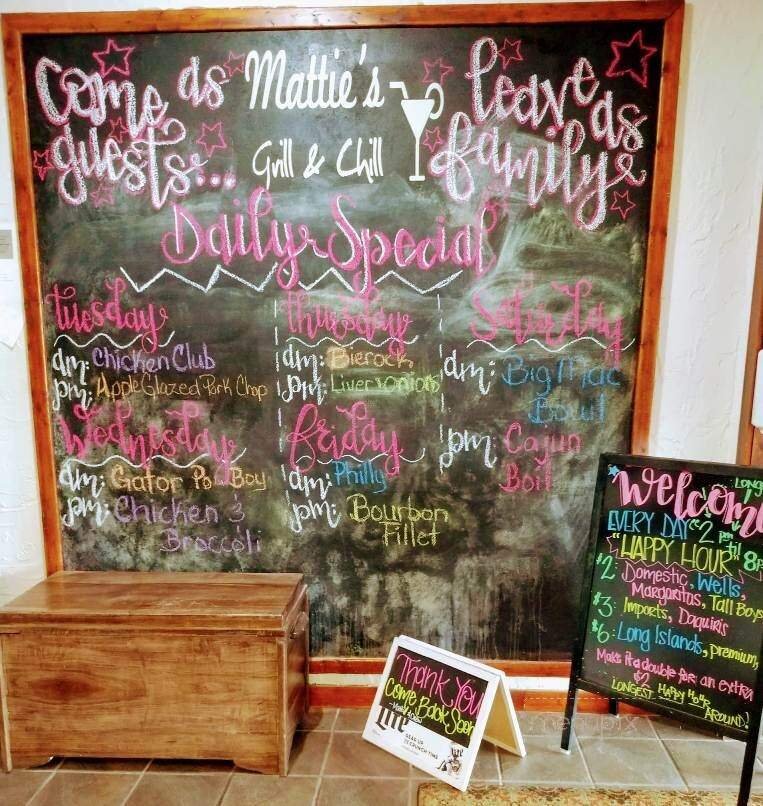 Come as guests...
Mattie's
Grill & Chill
leave as family
Daily Special
tuesday
am: Chicken Club
pm: Apple Glazed Pork Chop
Wednesday
am: Gator Po Boy
pm: Chicken &
Broccoli
thursday
am: Bierock
pm: Liver & Onions
friday
am: Philly
pm: Bourbon
Fillet
Saturday
am: Big Mac
Bowl
pm: Cajun
Boil
Welcome
EVERY DAY @ 2 pm til 8p
"HAPPY HOUR"
$2: Domestic, Wells,
Margaritas, Tall Boys
$3: Imports, Daquiris
$6: Long Islands, premium,
Make it a double for an extra
$2
LONGEST HAPPY HOUR
AROUND!
THANK YOU
Come Back Soon
Lite
GEAR UP
IT'S CRUNCH TIME
menupix